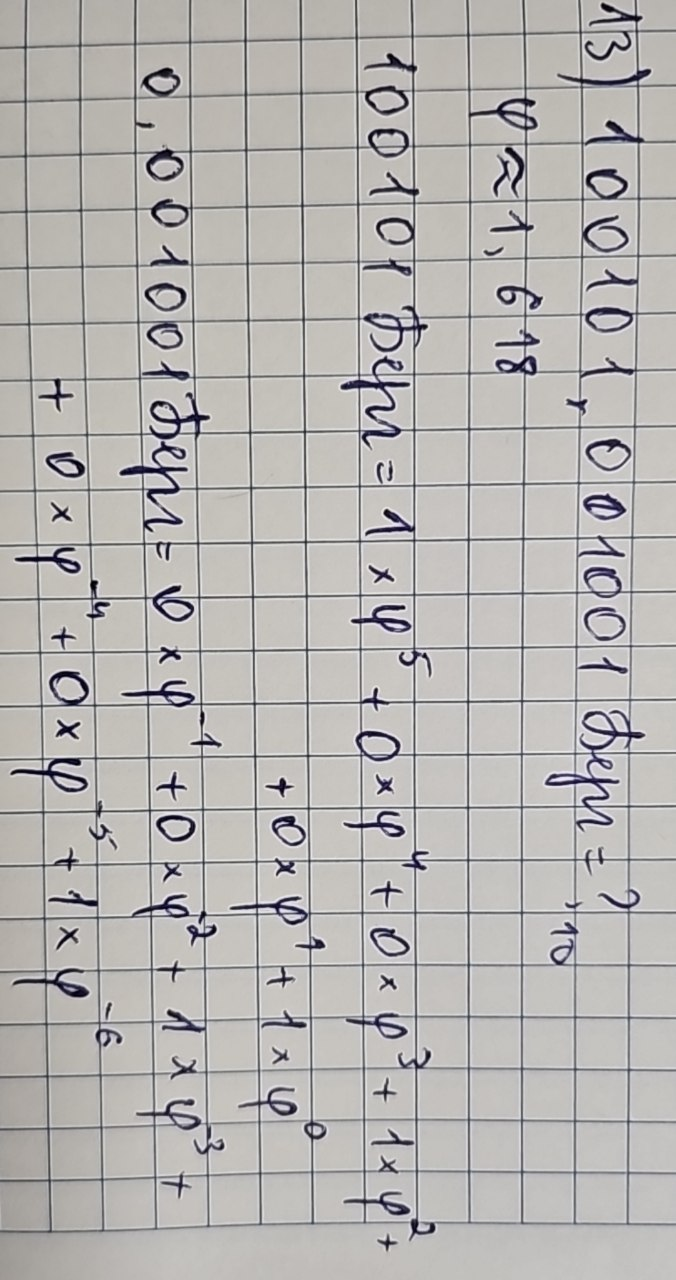 13) 100101,001001Берг = ?,10
φ ≈ 1,618
100101Берг = 1 × φ⁵ + 0 × φ⁴ + 0 × φ³ + 1 × φ² +
+ 0 × φ¹ + 1 × φ⁰
0,001001Берг = 0 × φ⁻¹ + 0 × φ⁻² + 1 × φ⁻³ +
+ 0 × φ⁻⁴ + 0 × φ⁻⁵ + 1 × φ⁻⁶